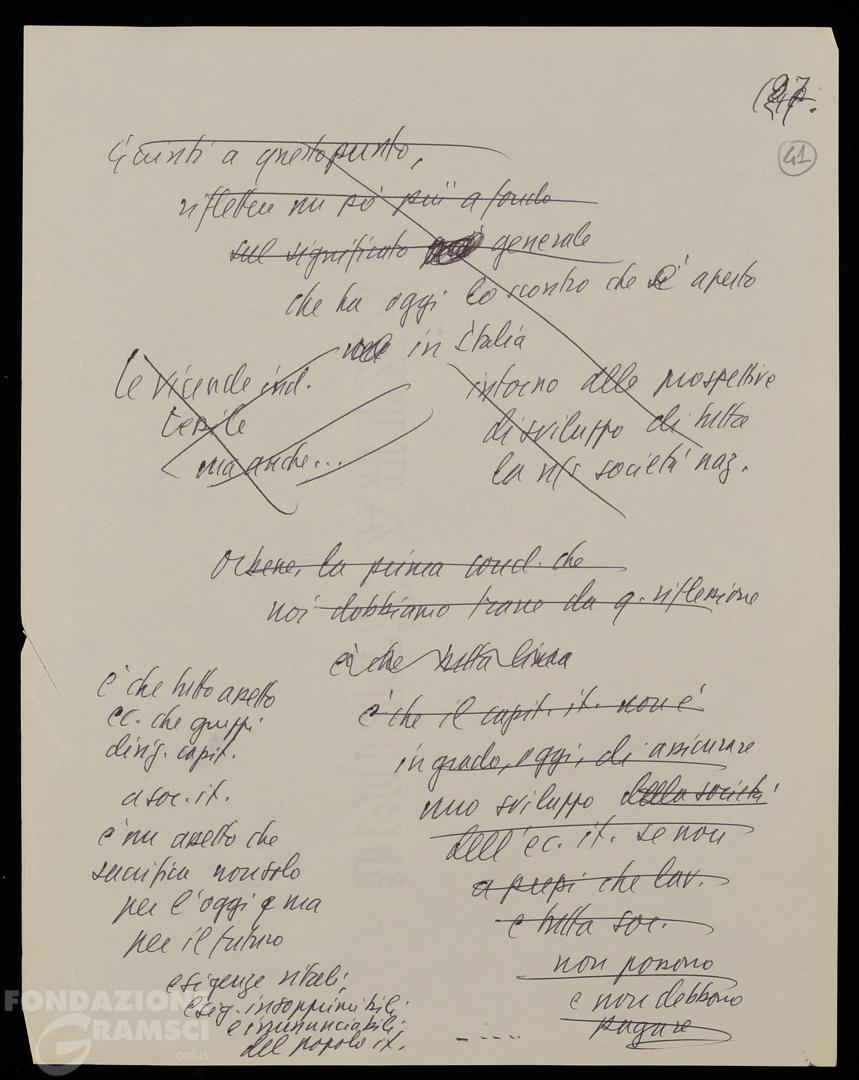 27.
41
Giunti a questo punto,
riflettere un po' più a fondo
sul significato generale
che ha oggi lo scontro che si è aperto
in Italia
intorno alle prospettive
di sviluppo di tutta
la ns società naz.
Le vicende ind.
tessile
ma anche...
Orbene, la prima concl. che
noi dobbiamo trarre da q. riflessione
è che tutta linea
è che il capit. it. non è
in grado, oggi, di assicurare
uno sviluppo della società
dell'ec. it. se non
a prezzi che lav.
e tutta soc.
non possono
e non debbono
pagare
è che tutto assetto
ec. che gruppi
dirig. capit.
a soc. it.
è un assetto che
sacrifica non solo
per l'oggi ma
per il futuro
esigenze vitali,
esig. insopprimibili
e irrinunciabili
del popolo it.
FONDAZIONE
GRAMSCI
onlus